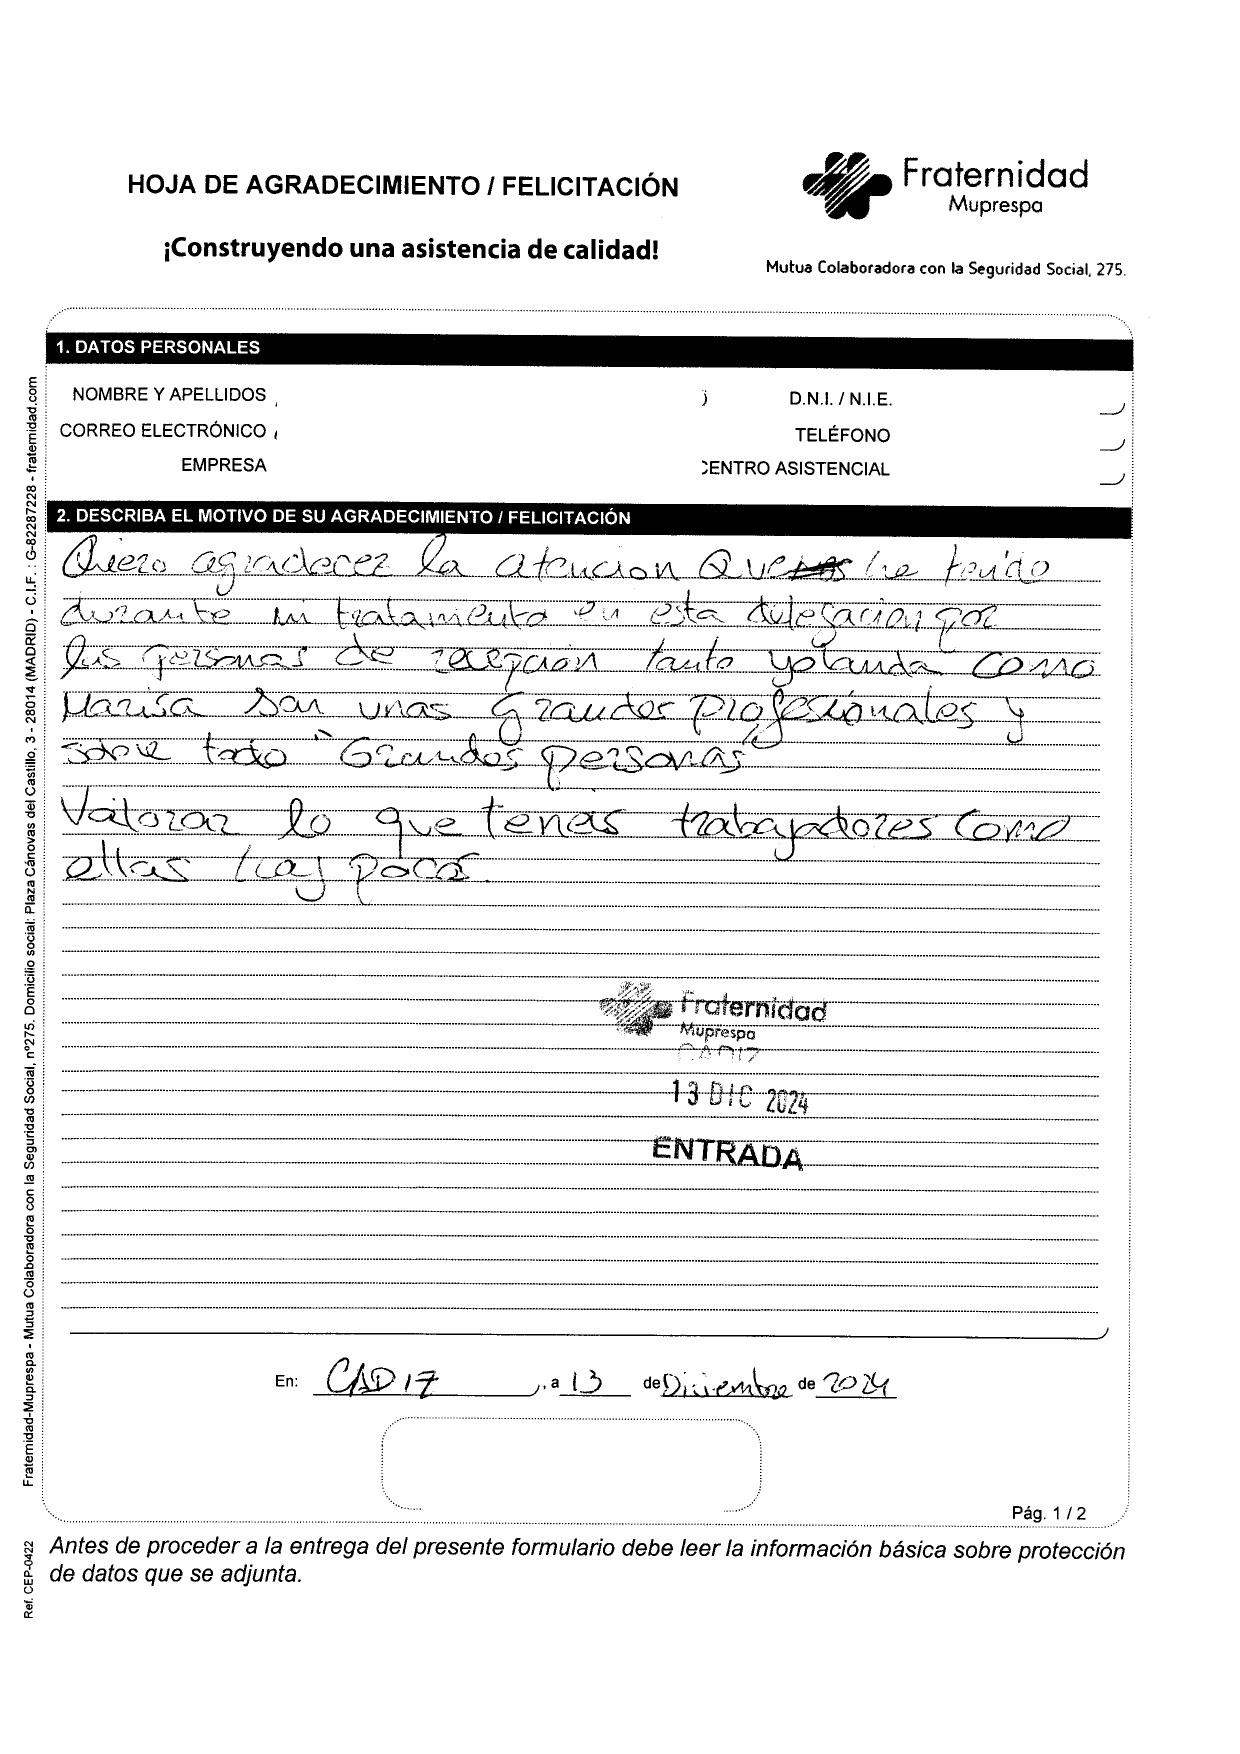 HOJA DE AGRADECIMIENTO / FELICITACIÓN
¡Construyendo una asistencia de calidad!
Fraternidad
Muprespa
Mutua Colaboradora con la Seguridad Social, 275.
1. DATOS PERSONALES
NOMBRE Y APELLIDOS
D.N.I. / N.I.E.
CORREO ELECTRÓNICO
TELÉFONO
EMPRESA
CENTRO ASISTENCIAL
2. DESCRIBA EL MOTIVO DE SU AGRADECIMIENTO / FELICITACIÓN
Quiero agradecer la atencion Que he tenido
durante mi tratamiento en esta delegacion por
las personas de recepción tanto yolanda como
Marisa son unas grandes profesionales y
sobre todo "Grandes personas"
Valorar lo que teneis trabajadores como
ellas hay pocos
Fraternidad
Muprespa
CADIZ
13 DIC 2024
ENTRADA
En: CADIZ, a 13 de Diciembre de 2024
Pág. 1 / 2
Antes de proceder a la entrega del presente formulario debe leer la información básica sobre protección
de datos que se adjunta.
Fraternidad-Muprespa - Mutua Colaboradora con la Seguridad Social, nº275. Domicilio social: Plaza Cánovas del Castillo, 3 - 28014 (MADRID) - C.I.F. : G-82287228 - fraternidad.com
Ref. CEP-0422